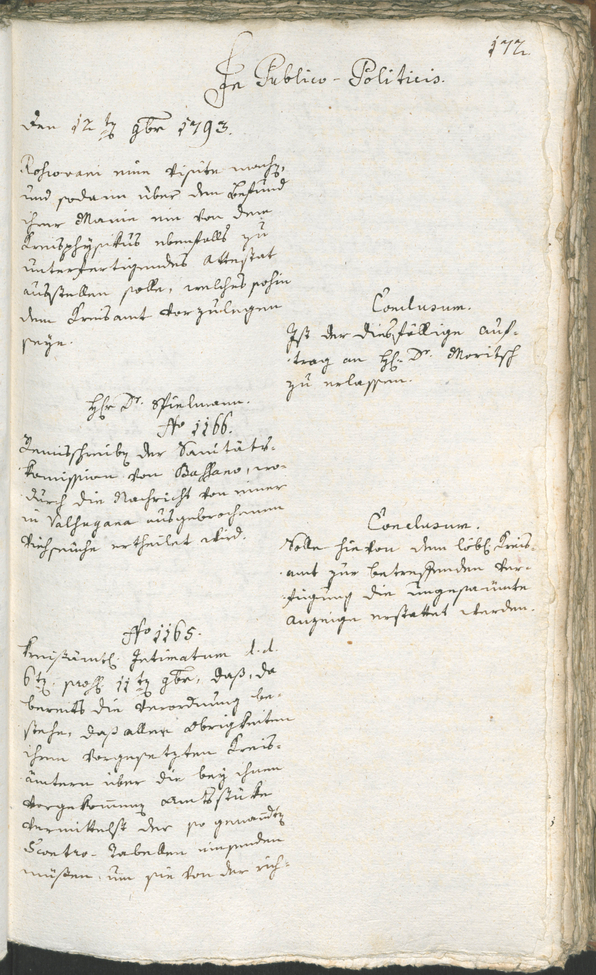 172.
In Publico-Politicis.
Den 12 tg 9br 1793.
eine Visite mache,
und sodann über den Befund
ihrer Manie ein von dem
Kreisphÿsikus ebenfalls zu
unterfertigendes Attestat
ausstellen solle, welches sohin
dem Kreisamt vorzulegen
seÿe.
Conclusum.
Ist der diesfällige Auf-
trag an H: Dr. Moritsch
zu erlassen.
H: Dr. Spielmann.
No 1166.
Remisschreiben der Sanitäts-
komission von Bassano, wo-
durch die Nachricht von einer
in Valsugana ausgebrochenen
Viehseüche ertheilet wird.
Conclusum.
Solle hievon dem löbl. Kreis-
amt zur betreffenden Ver-
fügung die ungesäumte
Anzeige erstattet werden.
No 1165.
Kreisämtl. Intimatum d. d.
6 tg 11 tg 9br, daß, da
bereits die Verordnung be-
stehe, daß alle Obrigkeiten
ihren vorgesetzten Kreis-
ämtern über die beÿ ihnen
vorgekommenen Amtsstüke
vermittelst der so genannten
Scontro-Tabellen einsenden
müßen, um sie von der rich-